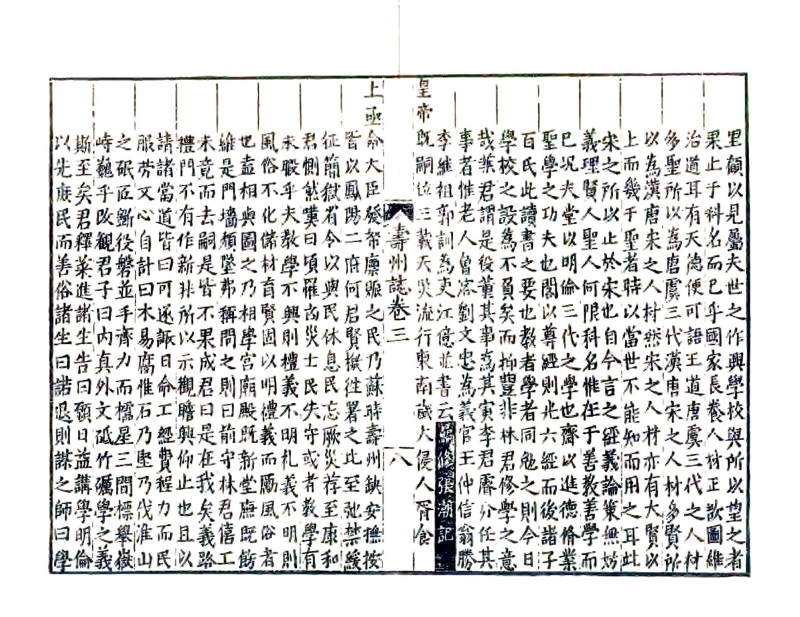 里顧以見屬夫世之作興學校與所以望之者
果止于科名而已乎國家長養人材正欲圖維
治道耳有天德便可語王道唐虞三代之人材
多聖所以為唐虞三代漢唐宋之人材多賢所
以為漢唐宋之人材然宋之人材亦有大賢以
上而幾于聖者時以當世不能知而用之耳此
宋之所以止於宋也自今言之經義論策無妨
義理賢人聖人何限科名惟在于善教善學而
已況夫堂以明倫三代之學也齋以進德脩業
聖學之功夫也閣以尊經則光六經而後諸子
百氏此讀書之要也教者學者同勉之則今日
學校之設為不負矣而抑豈非林君修學之意
哉葉君謂是役董其事為其寅李君譽分任其
事者惟老人曾容劉文忠為義官王仲信翁勝
李維祖郭訓為吏江億並書云
編修張潮記
皇帝既嗣位三載天災流行東南歲大侵人胥食
上亟命大臣發帑廩賑之民乃蘇時壽州缺安撫按
皆以鳳陽二府何君賢檄徃署之比至弛禁緩
征簡獄省令以與民休息民忘厥災荐至康和
君惻然嘆曰頃罹凶災士民失守或者教學有
未職乎夫教學不興則禮義不明礼義不明則
風俗不化儲材育賢固以明禮義而厲風俗者
也盍相與圖之乃稱學宮廟殿既新堂廡既飭
維是門墻頹墜弗稱問之則曰前守林君僖工
未竟而去嗣是皆不果成君曰是在我矣義路
禮門不有作新非所以示觀瞻興仰止也且以
請諸當道皆曰可遂諏日命工經費程力而民
服労又心自計曰木易腐惟石乃堅乃伐淮山
之砥匠斲役礱並手齊力而櫺星三間標舉嶽
峙巍乎改觀君子曰内真外文砥竹礪學之義
斯至矣君釋菜進諸生告曰願日益講學明倫
以先庶民而善俗諸生曰諾退則謀之師曰學
壽州誌卷三
八